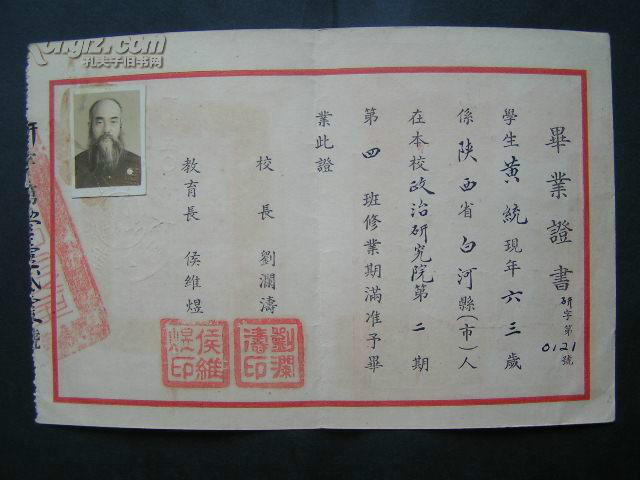 畢業證書
研字第0121號
學生黃統現年六三歲
係陝西省白河縣(市)人
在本校政治研究院第二期
第四班修業期滿准予畢
業此證
校長 劉瀾濤
教育長 侯維煜
劉瀾濤印
侯維煜印
kongfz.com
孔夫子旧书网